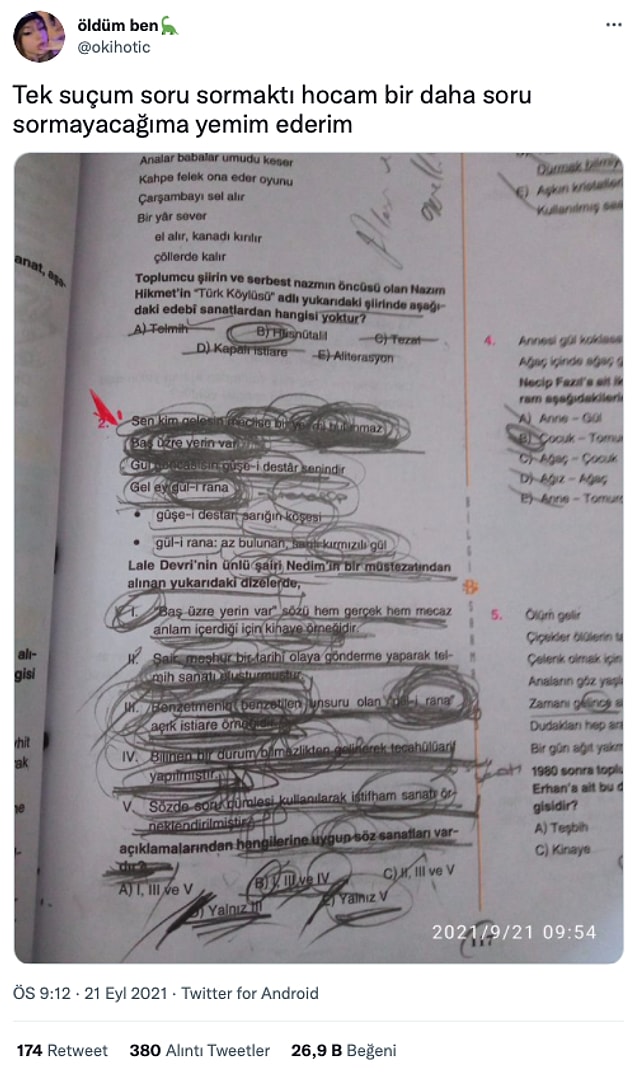 öldüm ben
@okihotic
Tek suçum soru sormaktı hocam bir daha soru
sormayacağıma yemim ederim
Analar babalar umudu keser
Kahpe felek ona eder oyunu
Çarşambayı sel alır
Bir yâr sever
el alır, kanadı kırılır
çöllerde kalır
Toplumcu şiirin ve serbest nazmın öncüsü olan Nazım
Hikmet'in "Türk Köylüsü" adlı yukarıdaki şiirinde aşağı-
daki edebî sanatlardan hangisi yoktur?
A) Telmih
B) Hüsnütalil
C) Tezat
D) Kapalı istiare
E) Aliterasyon
2.
Sen kim gelesin meclise bir yer bulunmaz
Baş üzre yerin var
Gül goncasısın gûşe-i destâr senindir
Gel ey gül-i rana
• gûşe-i destar: sarığın köşesi
• gül-i rana: az bulunan, kırmızılı gül
Lale Devri'nin ünlü şairi Nedim'in bir müstezatından
alınan yukarıdaki dizelerde,
I. "Baş üzre yerin var" sözü hem gerçek hem mecaz
anlam içerdiği için kinaye örneğidir.
II. Şair, meşhur bir tarihî olaya gönderme yaparak tel-
mih sanatı oluşturmuştur.
III. Benzetmenin benzetilen unsuru olan "gül-i rana"
açık istiare örneğidir.
IV. Bilinen bir durum bilmezlikten gelinerek tecahülüarif
yapılmıştır.
V. Sözde soru cümlesi kullanılarak istifham sanatı ör-
neklendirilmiştir.
açıklamalarından hangilerine uygun söz sanatları var-
dır?
A) I, III ve V
B) I, III ve IV
C) II, III ve V
D) Yalnız III
E) Yalnız V
anat, aşa-
alı-
gisi
ne
Durmak bilmiy
E) Aşkın kristalleri
Kullanılmış ses
4. Annesi gül koklasa
Ağaç içinde ağaç g
Necip Fazıl'a ait
ram aşağıdakileri
A) Anne – Gül
B) Çocuk – Tomur
C) Ağaç – Çocuk
D) Ağız – Ağaç
E) Anne – Tomurc
5. Ölüm gelir
Çiçekler ölülerin
Çelenk olmak için
Anaların göz yaşl
Zamanı gelince
Dudakları hep
Bir gün ağıt yakm
1980 sonra toplu
Erhan'a ait bu d
gisidir?
A) Teşbih
C) Kinaye
2021/9/21 09:54
ÖS 9:12 · 21 Eyl 2021 · Twitter for Android
174 Retweet 380 Alıntı Tweetler 26,9 B Beğeni